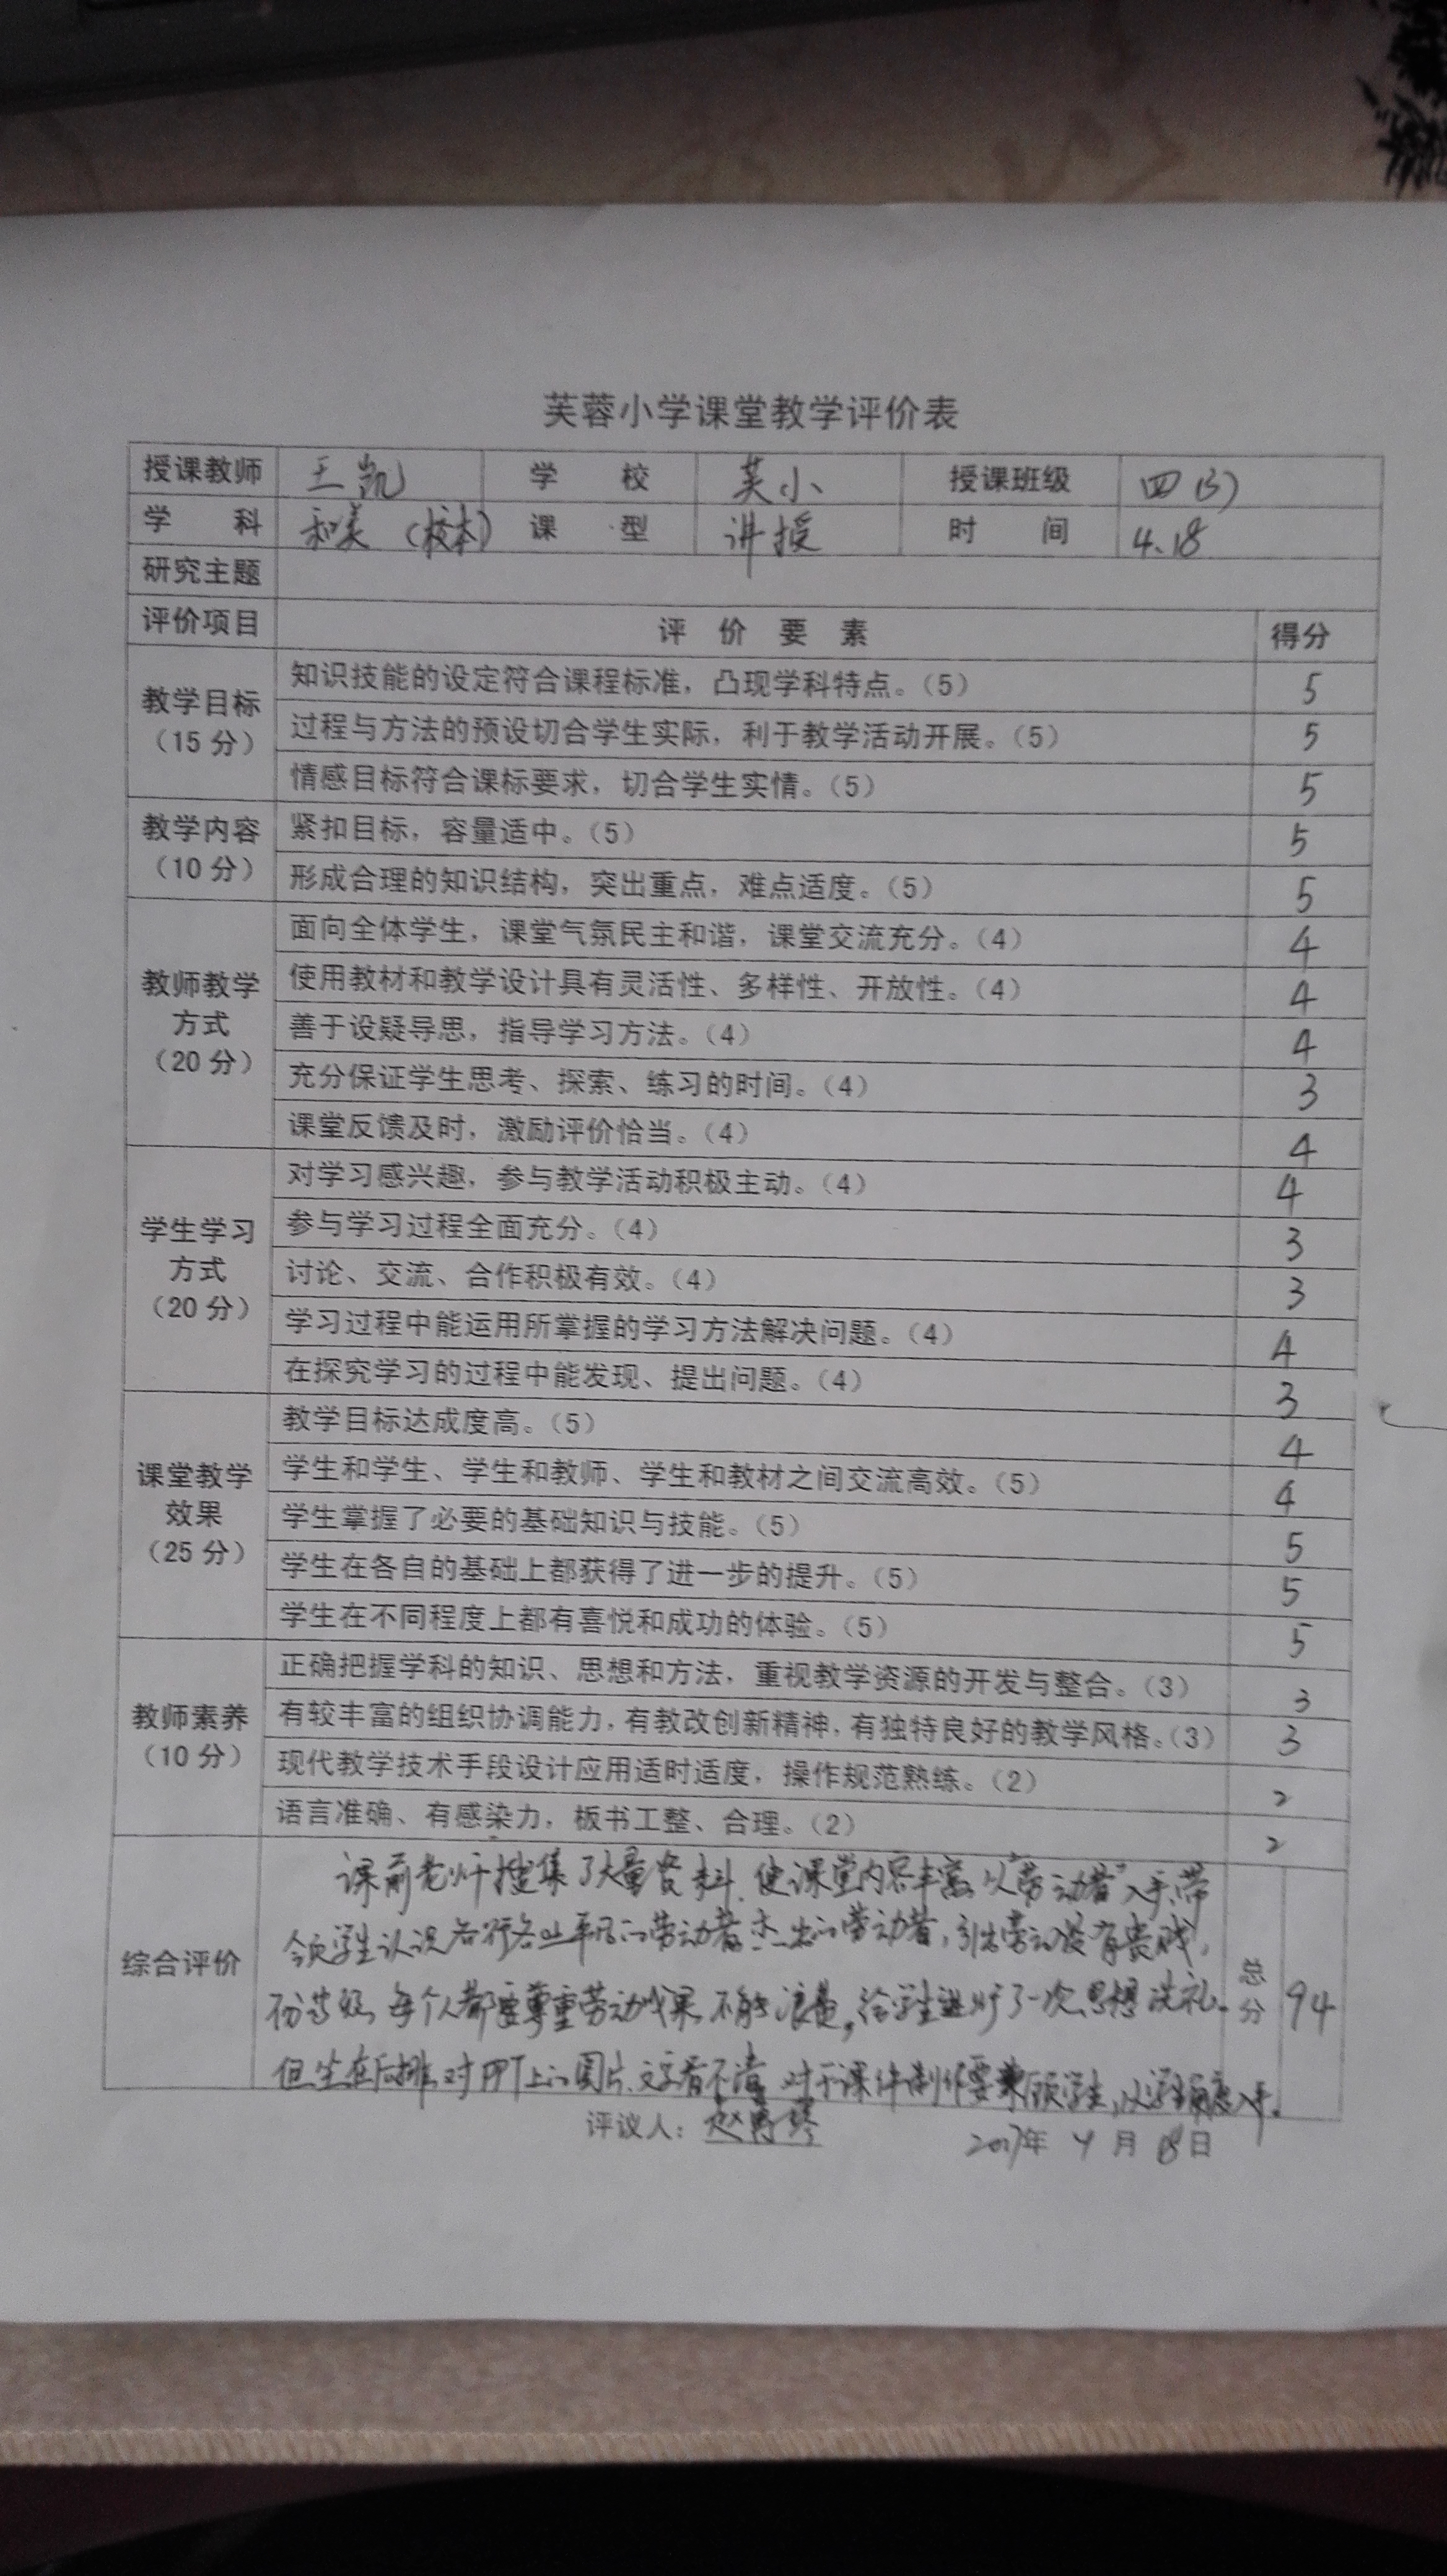 芙蓉小学课堂教学评价表
授课教师 王凯 学 校 芙小 授课班级 四(3)
学 科 和美(校本) 课 型 讲授 时 间 4.18
研究主题
评价项目 评 价 要 素 得分
教学目标
(15分)
知识技能的设定符合课程标准,凸现学科特点。(5) 5
过程与方法的预设切合学生实际,利于教学活动开展。(5) 5
情感目标符合课标要求,切合学生实情。(5) 5
教学内容
(10分)
紧扣目标,容量适中。(5) 5
形成合理的知识结构,突出重点,难点适度。(5) 5
教师教学
方式
(20分)
面向全体学生,课堂气氛民主和谐,课堂交流充分。(4) 4
使用教材和教学设计具有灵活性、多样性、开放性。(4) 4
善于设疑导思,指导学习方法。(4) 4
充分保证学生思考、探索、练习的时间。(4) 3
课堂反馈及时,激励评价恰当。(4) 4
学生学习
方式
(20分)
对学习感兴趣,参与教学活动积极主动。(4) 4
参与学习过程全面充分。(4) 3
讨论、交流、合作积极有效。(4) 3
学习过程中能运用所掌握的学习方法解决问题。(4) 4
在探究学习的过程中能发现、提出问题。(4) 3
课堂教学
效果
(25分)
教学目标达成度高。(5) 4
学生和学生、学生和教师、学生和教材之间交流高效。(5) 4
学生掌握了必要的基础知识与技能。(5) 5
学生在各自的基础上都获得了进一步的提升。(5) 5
学生在不同程度上都有喜悦和成功的体验。(5) 5
教师素养
(10分)
正确把握学科的知识、思想和方法,重视教学资源的开发与整合。(3) 3
有较丰富的组织协调能力,有教改创新精神,有独特良好的教学风格。(3) 3
现代教学技术手段设计应用适时适度,操作规范熟练。(2) 2
语言准确、有感染力,板书工整、合理。(2) 2
综合评价
课前老师搜集了大量资料,使课堂内容丰富,以"劳动者"入手,带
领学生认识各行各业平凡的劳动者,杰出的劳动者,引出劳动没有贵贱,
不分等级,每个人都要尊重劳动成果,不能浪费,给学生进行了一次思想洗礼。
但坐在后排,对PPT上的图片、文字看不清,对于课件制作要兼顾学生,以学生角度入手。
总分 94
评议人:赵 2017年4月18日